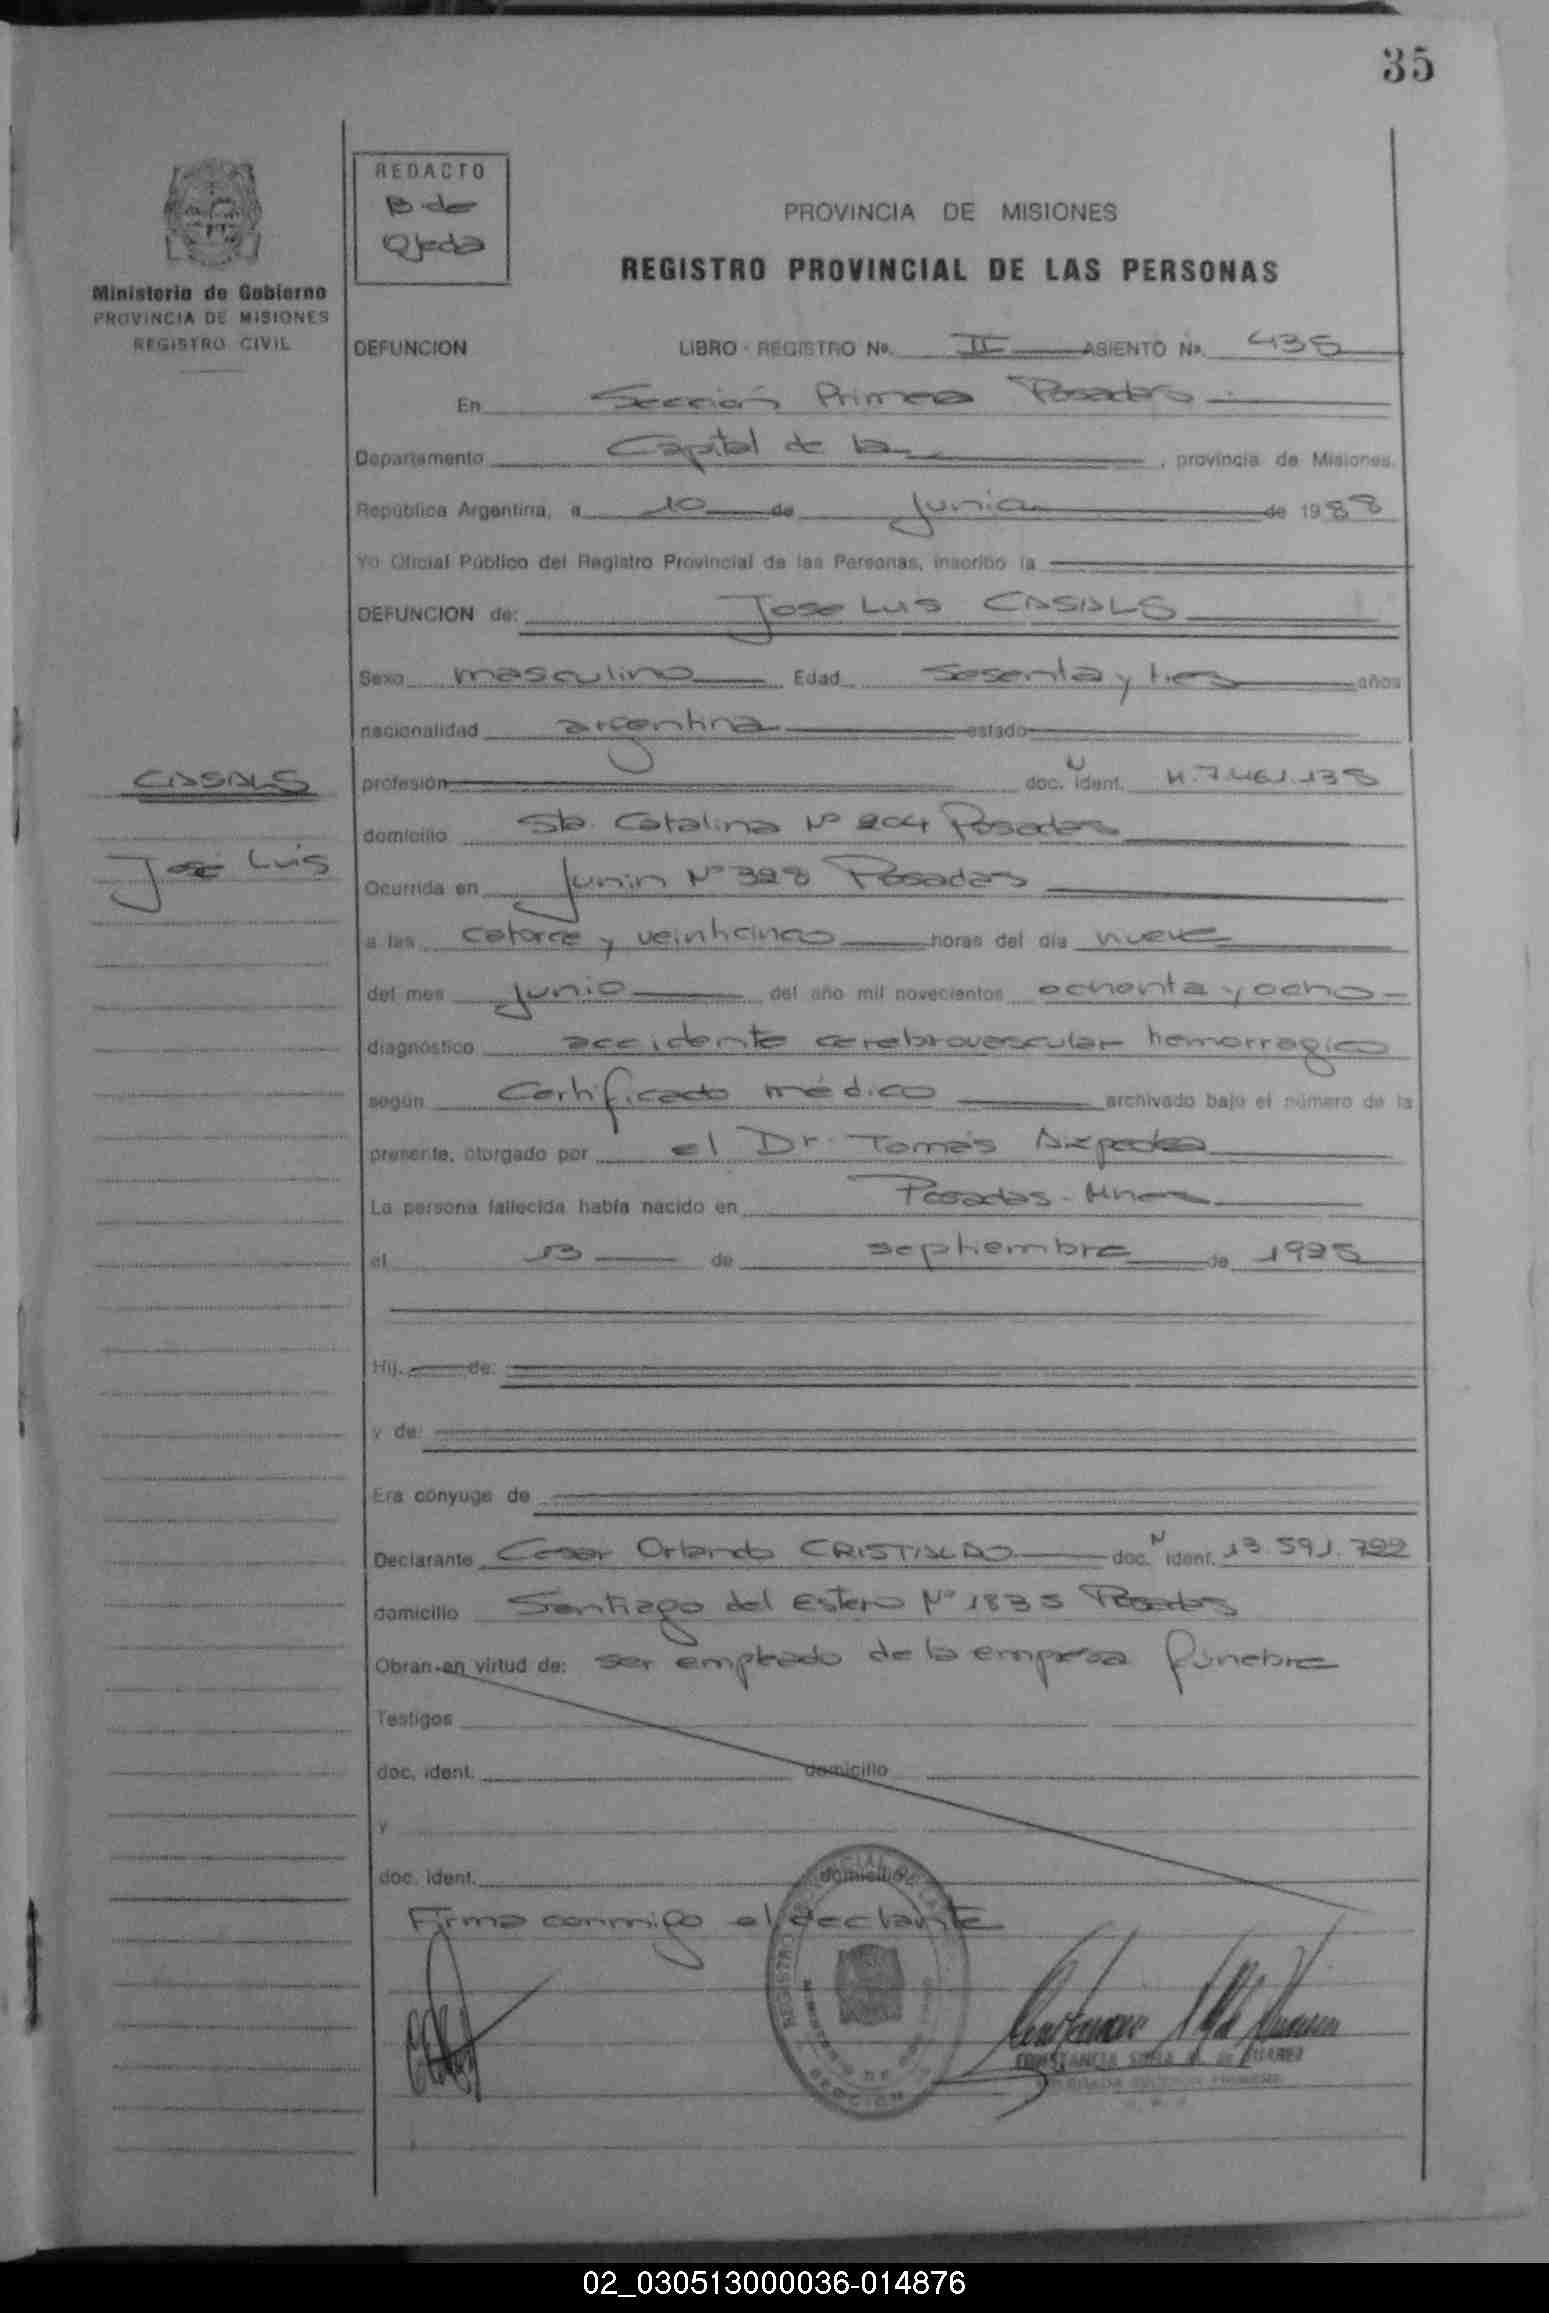 35
REDACTO
B. de
Ojeda
Ministerio de Gobierno
PROVINCIA DE MISIONES
REGISTRO CIVIL
PROVINCIA DE MISIONES
REGISTRO PROVINCIAL DE LAS PERSONAS
DEFUNCION LIBRO - REGISTRO Nº. II ASIENTO Nº. 435
En Sección Primera Posadas
Departamento Capital de la , provincia de Misiones.
República Argentina, a 10 de junio de 1988
Yo Oficial Público del Registro Provincial de las Personas, inscribo la
DEFUNCION de: Jose Luis CASALS
Sexo masculino Edad sesenta y tres años
nacionalidad argentina estado
CASALS
José Luis
profesión doc. N ident. M. 7.461.138
domicilio Sta. Catalina Nº 204 Posadas
Ocurrida en Junin Nº 328 Posadas
a las catorce y veinticinco horas del día nueve
del mes junio del año mil novecientos ochenta y ocho
diagnóstico accidente cerebrovascular hemorragico
según Certificado médico archivado bajo el número de la
presente, otorgado por el Dr. Tomás
La persona fallecida había nacido en Posadas - Mnes
el 13 de septiembre de 1925
Hij. de:
y de:
Era cónyuge de
Declarante Cesar Orlando CRISTALDO doc. N ident. 13.591.722
domicilio Santiago del Estero Nº 1835 Posadas
Obran en virtud de: ser empleado de la empresa fúnebre
Testigos
doc. ident. domicilio
y
doc. ident. domicilio
Firma conmigo el declarante
CONSTANCIA DE SUAREZ
02_030513000036-014876